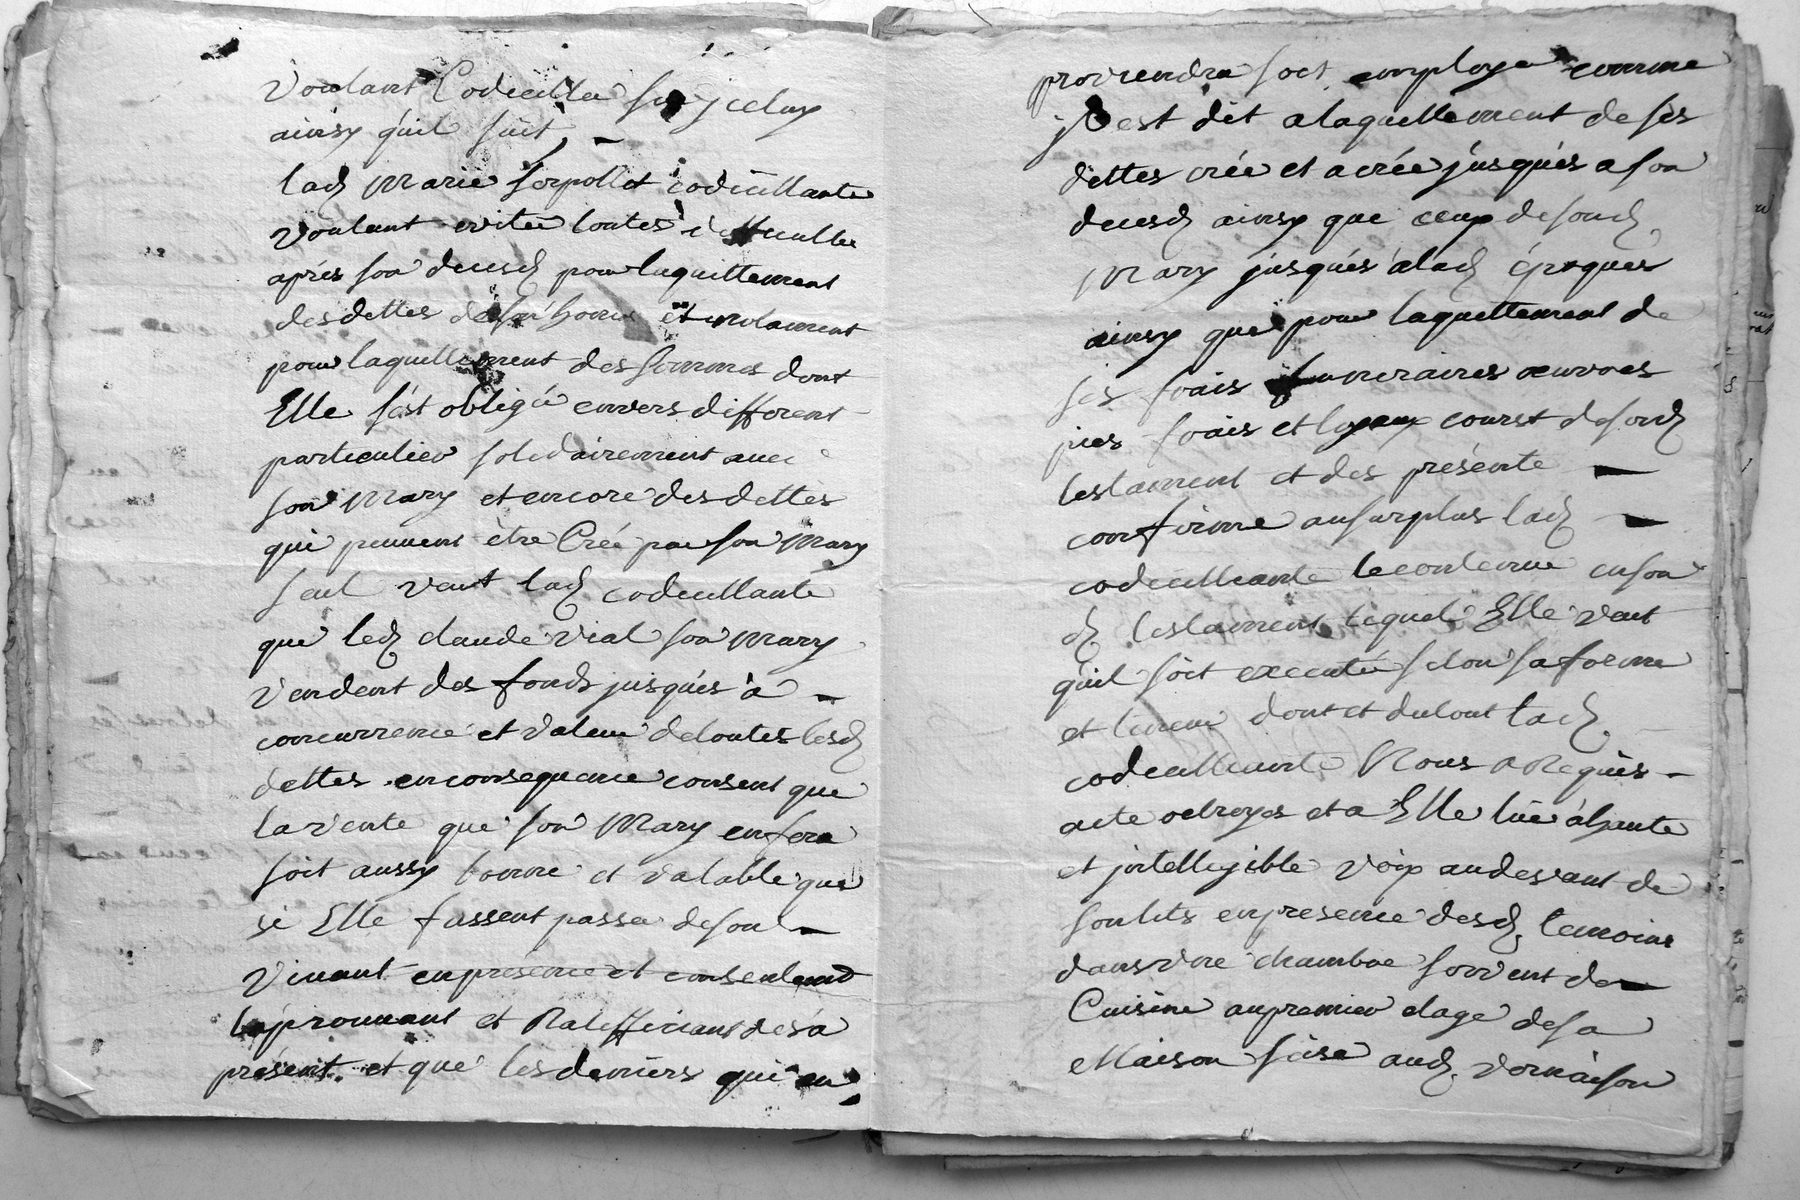 Voulant Codiciller sur jceluy
ainsy quil suit
lad Marie Serpollet codicillante
voulant eviter toutes difficultes
après son decesd pour laquittement
des dettes de son et notament
pour laquittement des sommes dont
Elle s'est obligée envers different
particulier solidairement avec
son Mary et encore des dettes
qui peuvent être Créé par son Mary
seul veut lad codicillante
que led claude vial son Mary
vendent des fonds jusqués à
concurrence et valeur de toutes lesd
dettes en consequance consent que
la vente que son Mary en fera
soit aussy bonne et valable que
si Elle fussent passer de son
vivant en présence et consentement
laprouvant et Ratiffiant des a
présent et que les derniers qui en
proviendra soit employer comme
jl est dit a laquittement de ses
dettes crée et a crée jusqués a son
decesd ainsy que ceux de sond
Mary jusqués a lad époques
ainsy que pour laquittement de
ses frais funeraires oeuvres
pies frais et loyaux coust de sond
testament et des présente
confirme au surplus lad
codicillante le contenue en son
d testament lequel Elle veut
quil soit executé selon sa forme
et teneur dont et du tout lad
codicillante Nous a Requis
acte octroyer et a Elle lüe à haute
et jntellijible voix au devant de
son lits en presence desd temoins
dans une chambre servent de
Cuisine au premier etage de sa
Maison sise aud vernaison